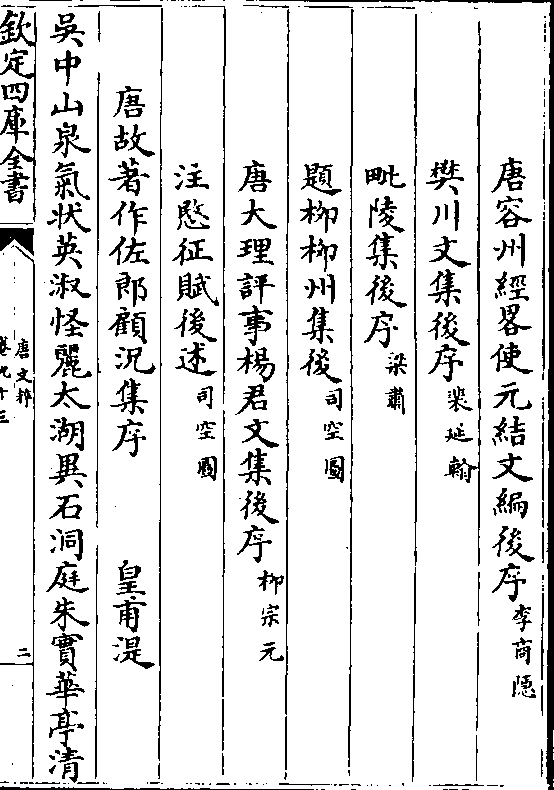 唐容州經畧使元結文編後序李商隱
樊川文集後序裴延翰
毗陵集後序梁肅
題柳柳州集後司空圖
唐大理評事楊君文集後序柳宗元
注愍征賦後述司空圖
唐故著作佐郎顧況集序 皇甫湜
吳中山泉氣狀英淑怪麗太湖異石洞庭朱實華亭清
欽定四庫全書
唐文粹
卷九十三
二